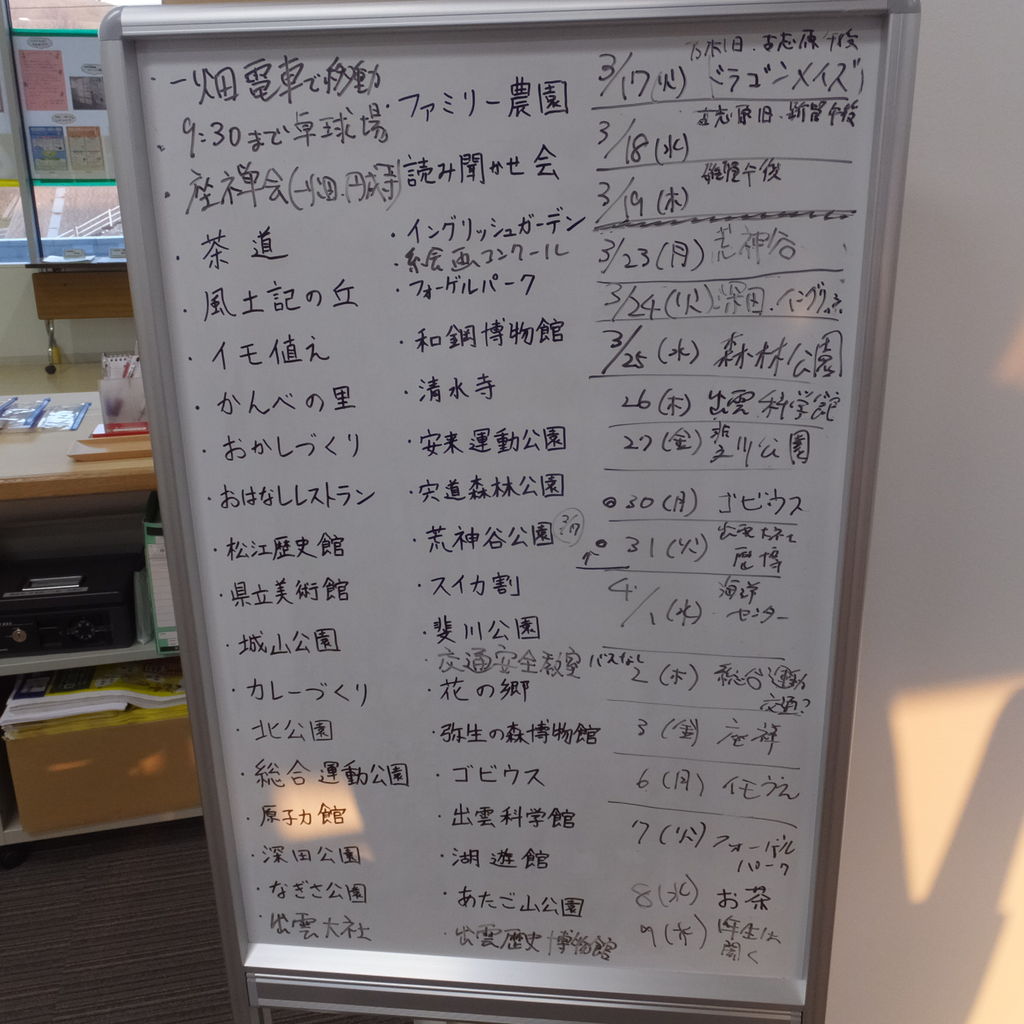 ・一畑電車で移動
・9:30まで卓球場
・座禅会(一畑.円成寺)
・茶道
・風土記の丘
・イモ値え
・かんべの里
・おかしづくり
・おはなしレストラン
・松江歴史館
・県立美術館
・城山公園
・カレーづくり
・北公園
・総合運動公園
・原子力館
・深田公園
・なぎさ公園
・出雲大社
・ファミリー農園
・読み聞かせ会
・イングリッシュガーデン
・絵画コンクール
・フォーゲルパーク
・和鋼博物館
・清水寺
・安来運動公園
・宍道森林公園
・荒神谷公園
・スイカ割
・斐川公園
・交通安全教室
・花の郷
・弥生の森博物館
・ゴビウス
・出雲科学館
・湖遊館
・あたご山公園
・出雲歴史博物館
乃木1日.古志原午後
3/17(火) ドラゴンメイズ
古志原1日.
3/18(水)
午後
3/19(木)
3/23(月) 荒神谷
3/24(火) 深田.イングリ
3/25(水) 森林公園
26(木) 出雲科学館
27(金) 斐川公園
30(月) ゴビウス
31(火) 出雲大社
歴博
4/1(水) 海洋
センター
バスなし
2(木) 総合運動
交通?
3(金) 座禅
6(月) イモうえ
7(火) フォーゲル
パーク
8(水) お茶
9(木) 1年生は
聞く